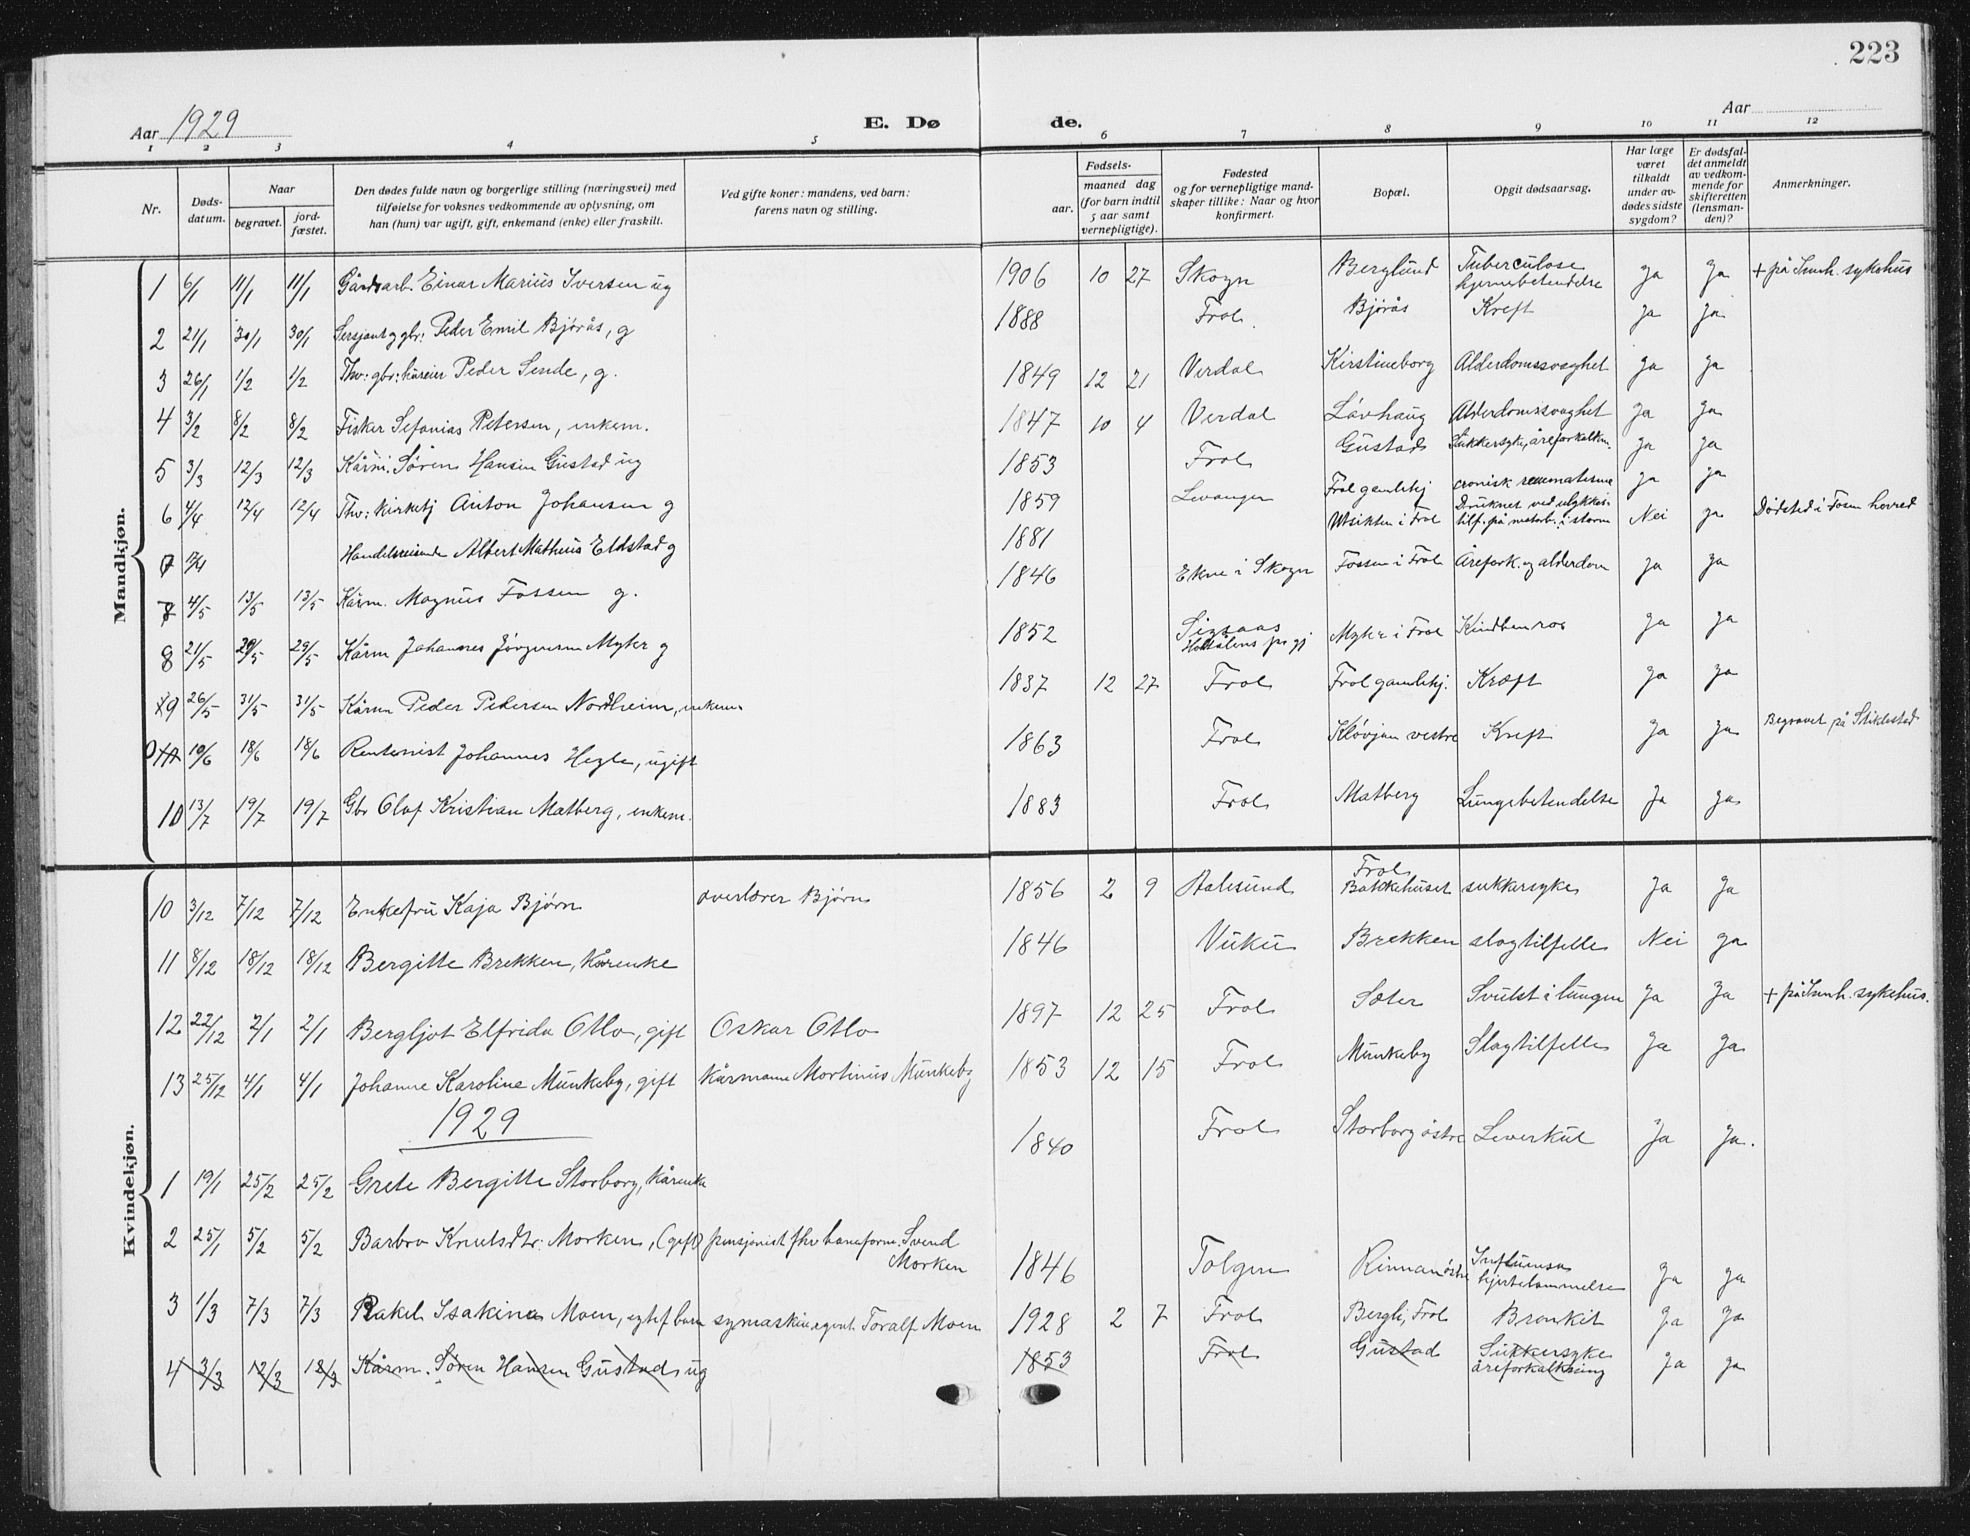 223
Aar 1929
E. Dø
de.
Aar
1 2 3 4 5 6 7 8 9 10 11 12
Nr.
Døds-
datum.
Naar
begravet.
jord-
fæstet.
Den dødes fulde navn og borgerlige stilling (næringsvei) med
tilføielse for voksnes vedkommende av oplysning, om
han (hun) var ugift, gift, enkemand (enke) eller fraskilt.
Ved gifte koner: mandens, ved barn:
farens navn og stilling.
Fødsels-
aar.
maaned dag
(for barn indtil
5 aar samt
vernepligtige).
Fødested
og for vernepligtige mand-
skaper tillike: Naar og hvor
konfirmert.
Bopæl.
Opgit dødsaarsag.
Har læge
været
tilkaldt
under av-
dødes sidste
sygdom?
Er dødsfal-
det anmeldt
av vedkom-
mende for
skifteretten
(lensman-
den)?
Anmerkninger.
Mandkjøn.
1 6/1 11/1 11/1 Gårdsarb. Einar Marius Iversen ug 1906 10 27 Skogn Berglund Tuberculose hjernebetendelse Ja Ja + på Innh. sykehus
2 21/1 30/1 30/1 Sersjant g gbr: Peder Emil Bjørås, g 1888 Frol. Bjørås Kreft Ja Ja
3 26/1 1/2 1/2 Thv: gbr: kåreier Peder Sende, g. 1849 12 21 Verdal Kirstineborg Alderdomssvaghet Ja Ja
4 3/2 8/2 8/2 Fisker Sefanias Petersen, enkem. 1847 10 4 Verdal Låvhaug Alderdomssvaghet Ja Ja
5 3/3 12/3 12/3 Kårm. Søren Hansen Gustad ug 1853 Frol Gustad Sukkersyke, åreforkalkn. Ja Ja
6 4/4 12/4 12/4 Thv: kirketj Anton Johansen g 1859 Levanger Frol gamlehj cronisk reumatisme Ja Ja
7 Handelsreisende Albert Mathius Eldstad g 1881 Utsikten i Frol Druknet ved ulykkes- tilf. på motorb. i storm Nei Ja Dødsted i Fosen herred
7 4/5 13/5 13/5 Kårm. Magnus Fossen g. 1846 Ekne i Skogn Fossen i Frol Årefork. og alderdom Ja Ja
8 21/5 29/5 29/5 Kårm Johannes Jørgensen Myhr g 1852 Singsaas Holtålens prgj Myhr i Frol Kindben ros Ja Ja
9 26/5 31/5 31/5 Kårm Peder Pedersen Nordheim, enkem 1837 12 27 Frol Frol gamlehj. Kræft Ja Ja
10/6 18/6 18/6 Rentenist Johannes Hegle, ugift 1863 Frol Kløvjan vestre Kreft Ja Ja Begravet på Stiklestad
10 13/7 19/7 19/7 Gbr Olaf Kristian Matberg, enkem. 1883 Frol Matberg Lungebetendelse Ja Ja
Kvindekjøn.
10 3/12 7/12 7/12 Enkefru Kaja Bjørn overlærer Bjørn 1856 2 9 Aalesund Frol Bakkehuset sukkersyke Ja Ja
11 8/12 18/12 18/12 Bergitte Brekken, Kårenke 1846 Vuku Brekken slagtilfelle Nei Ja
12 22/12 2/1 2/1 Bergljot Elfrida Otlo, gift Oskar Otlo 1897 12 25 Frol Sæter Svulst i lungen Ja Ja + på Innh. sykehus.
13 25/12 4/1 4/1 Johanne Karoline Munkeby, gift kårmann Mortinus Munkeby 1853 12 15 Frol Munkeby Slagtilfelle Ja Ja
1929
1 19/1 25/2 25/2 Grete Bergitte Storborg, kårenke 1840 Frol Storborg østre Leverkul Ja Ja.
2 25/1 5/2 5/2 Barbro Knutsdtr. Morken, (gift) pensjonist fhv baneform. Svend Morken 1846 Tolgen Rinnan østre Influensa hjertelammelse Ja Ja
3 1/3 7/3 7/3 Rakel Isakina Moen, egtef barn symaskinagent Toralf Moen 1928 2 7 Frol Bergli, Frol Bronkit Ja Ja
4 3/3 12/3 12/3 Kårm. Søren Hansen Gustad ug 1853 Frol Gustad Sukkersyke åreforkalkning Ja Ja